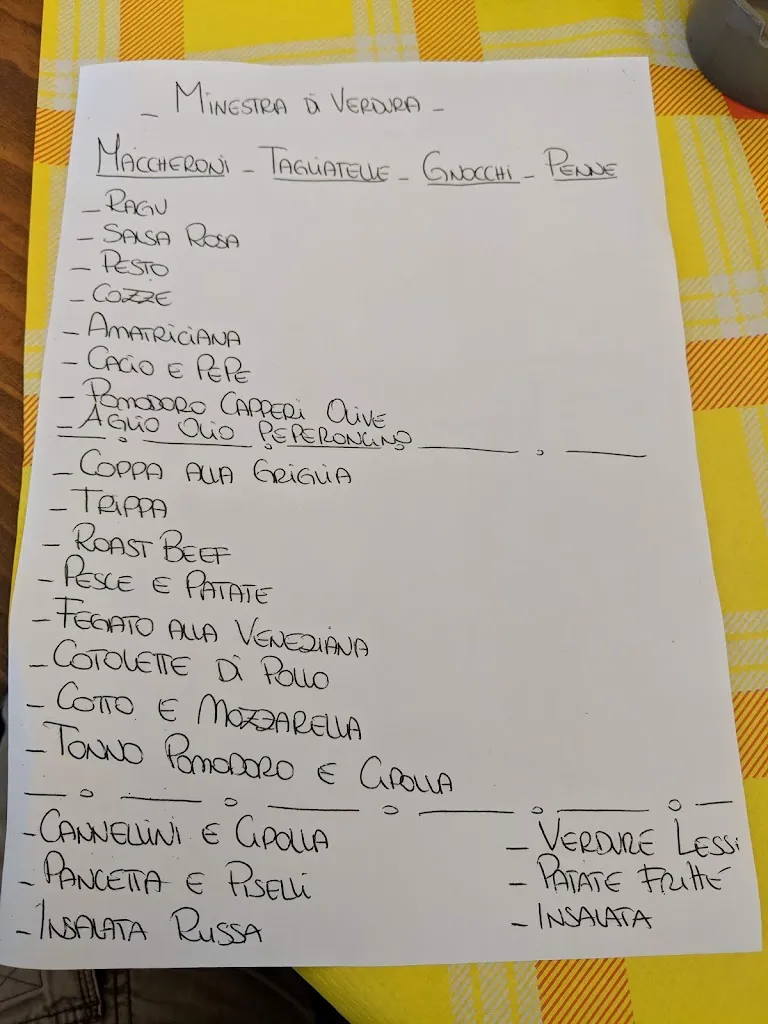 - MINESTRA DI VERDURA -
MACCHERONI - TAGLIATELLE - GNOCCHI - PENNE
- RAGU
- SALSA ROSA
- PESTO
- COZZE
- AMATRICIANA
- CACIO E PEPE
- POMODORO CAPPERI OLIVE
- AGLIO OLIO PEPERONCINO
- COPPA ALLA GRIGLIA
- TRIPPA
- ROAST BEEF
- PESCE E PATATE
- FEGATO ALLA VENEZIANA
- COTOLETTE DI POLLO
- COTTO E MOZZARELLA
- TONNO POMODORO E CIPOLLA
- CANNELLINI E CIPOLLA
- PANCETTA E PISELLI
- INSALATA RUSSA
- VERDURE LESSI
- PATATE FRITTE
- INSALATA